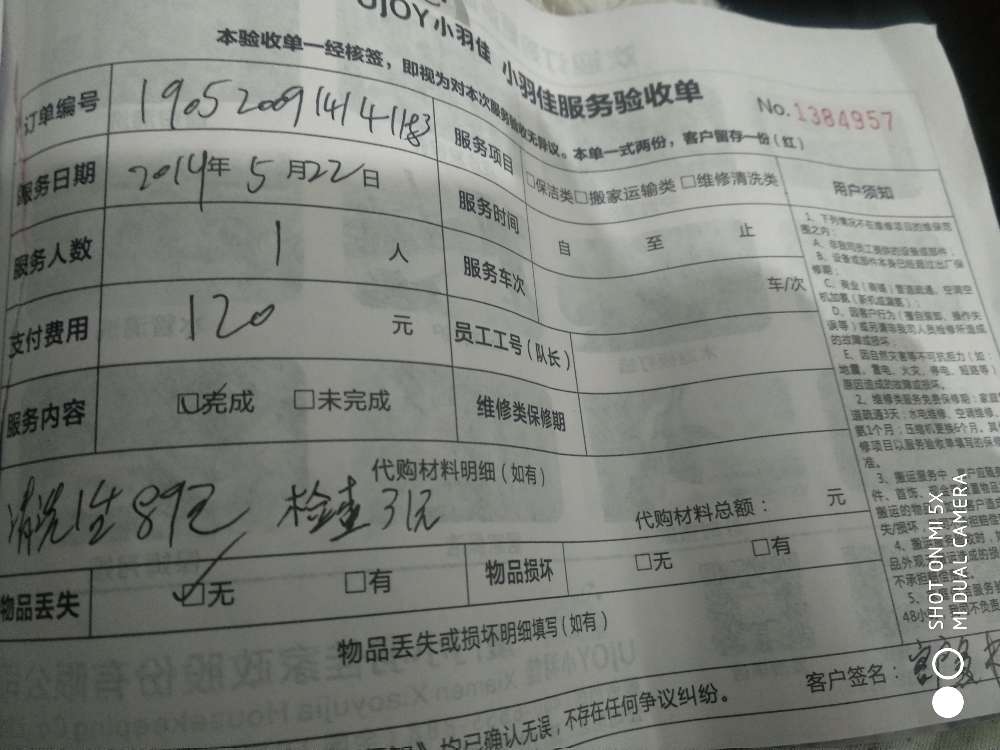 UJOY小羽佳 小羽佳服务验收单
本验收单一经核签，即视为对本次服务验收无异议。本单一式两份，客户留存一份（红）
No.1384957
订单编号 1905200914141183
服务项目 □保洁类□搬家运输类 □维修清洗类
用户须知
服务日期 2014年 5 月22日
服务时间 自 至 止
服务人数 1 人
服务车次 车/次
支付费用 120 元
员工工号（队长）
服务内容 ☑完成 □未完成
维修类保修期
代购材料明细（如有）
清洗1坐 89元 检查31元
代购材料总额： 元
物品丢失 ☑无 □有
物品损坏 □无 □有
物品丢失或损坏明细填写（如有）
客户签名：
均已确认无误，不存在任何争议纠纷。
1、下列情况不在维修项目的维保范
围之内：
A、非我司员工提供的设备或部件；
B、设备或部件本身已经超过出厂保
修期；
C、商业（商铺）管道疏通、空调空
机加氨（新机或漏氨）；
D、因客户行为（擅自拆卸、操作失
误等）或另请非我司人员检修所造成
的故障或损坏；
E、因自然灾害等不可抗拒力（如：
地震、雷电、火灾、停电、短路等）
原因造成的故障或损坏。
2、维修类服务免费保修期：家庭管
道疏通3天；水电维修、空调维修、
氨1个月；压缩机更换6个月。其
修项目以服务验收单填写的保修
准。
3、搬运服务中，客户应随身
SHOT ON MI 5X
MI DUAL CAMERA